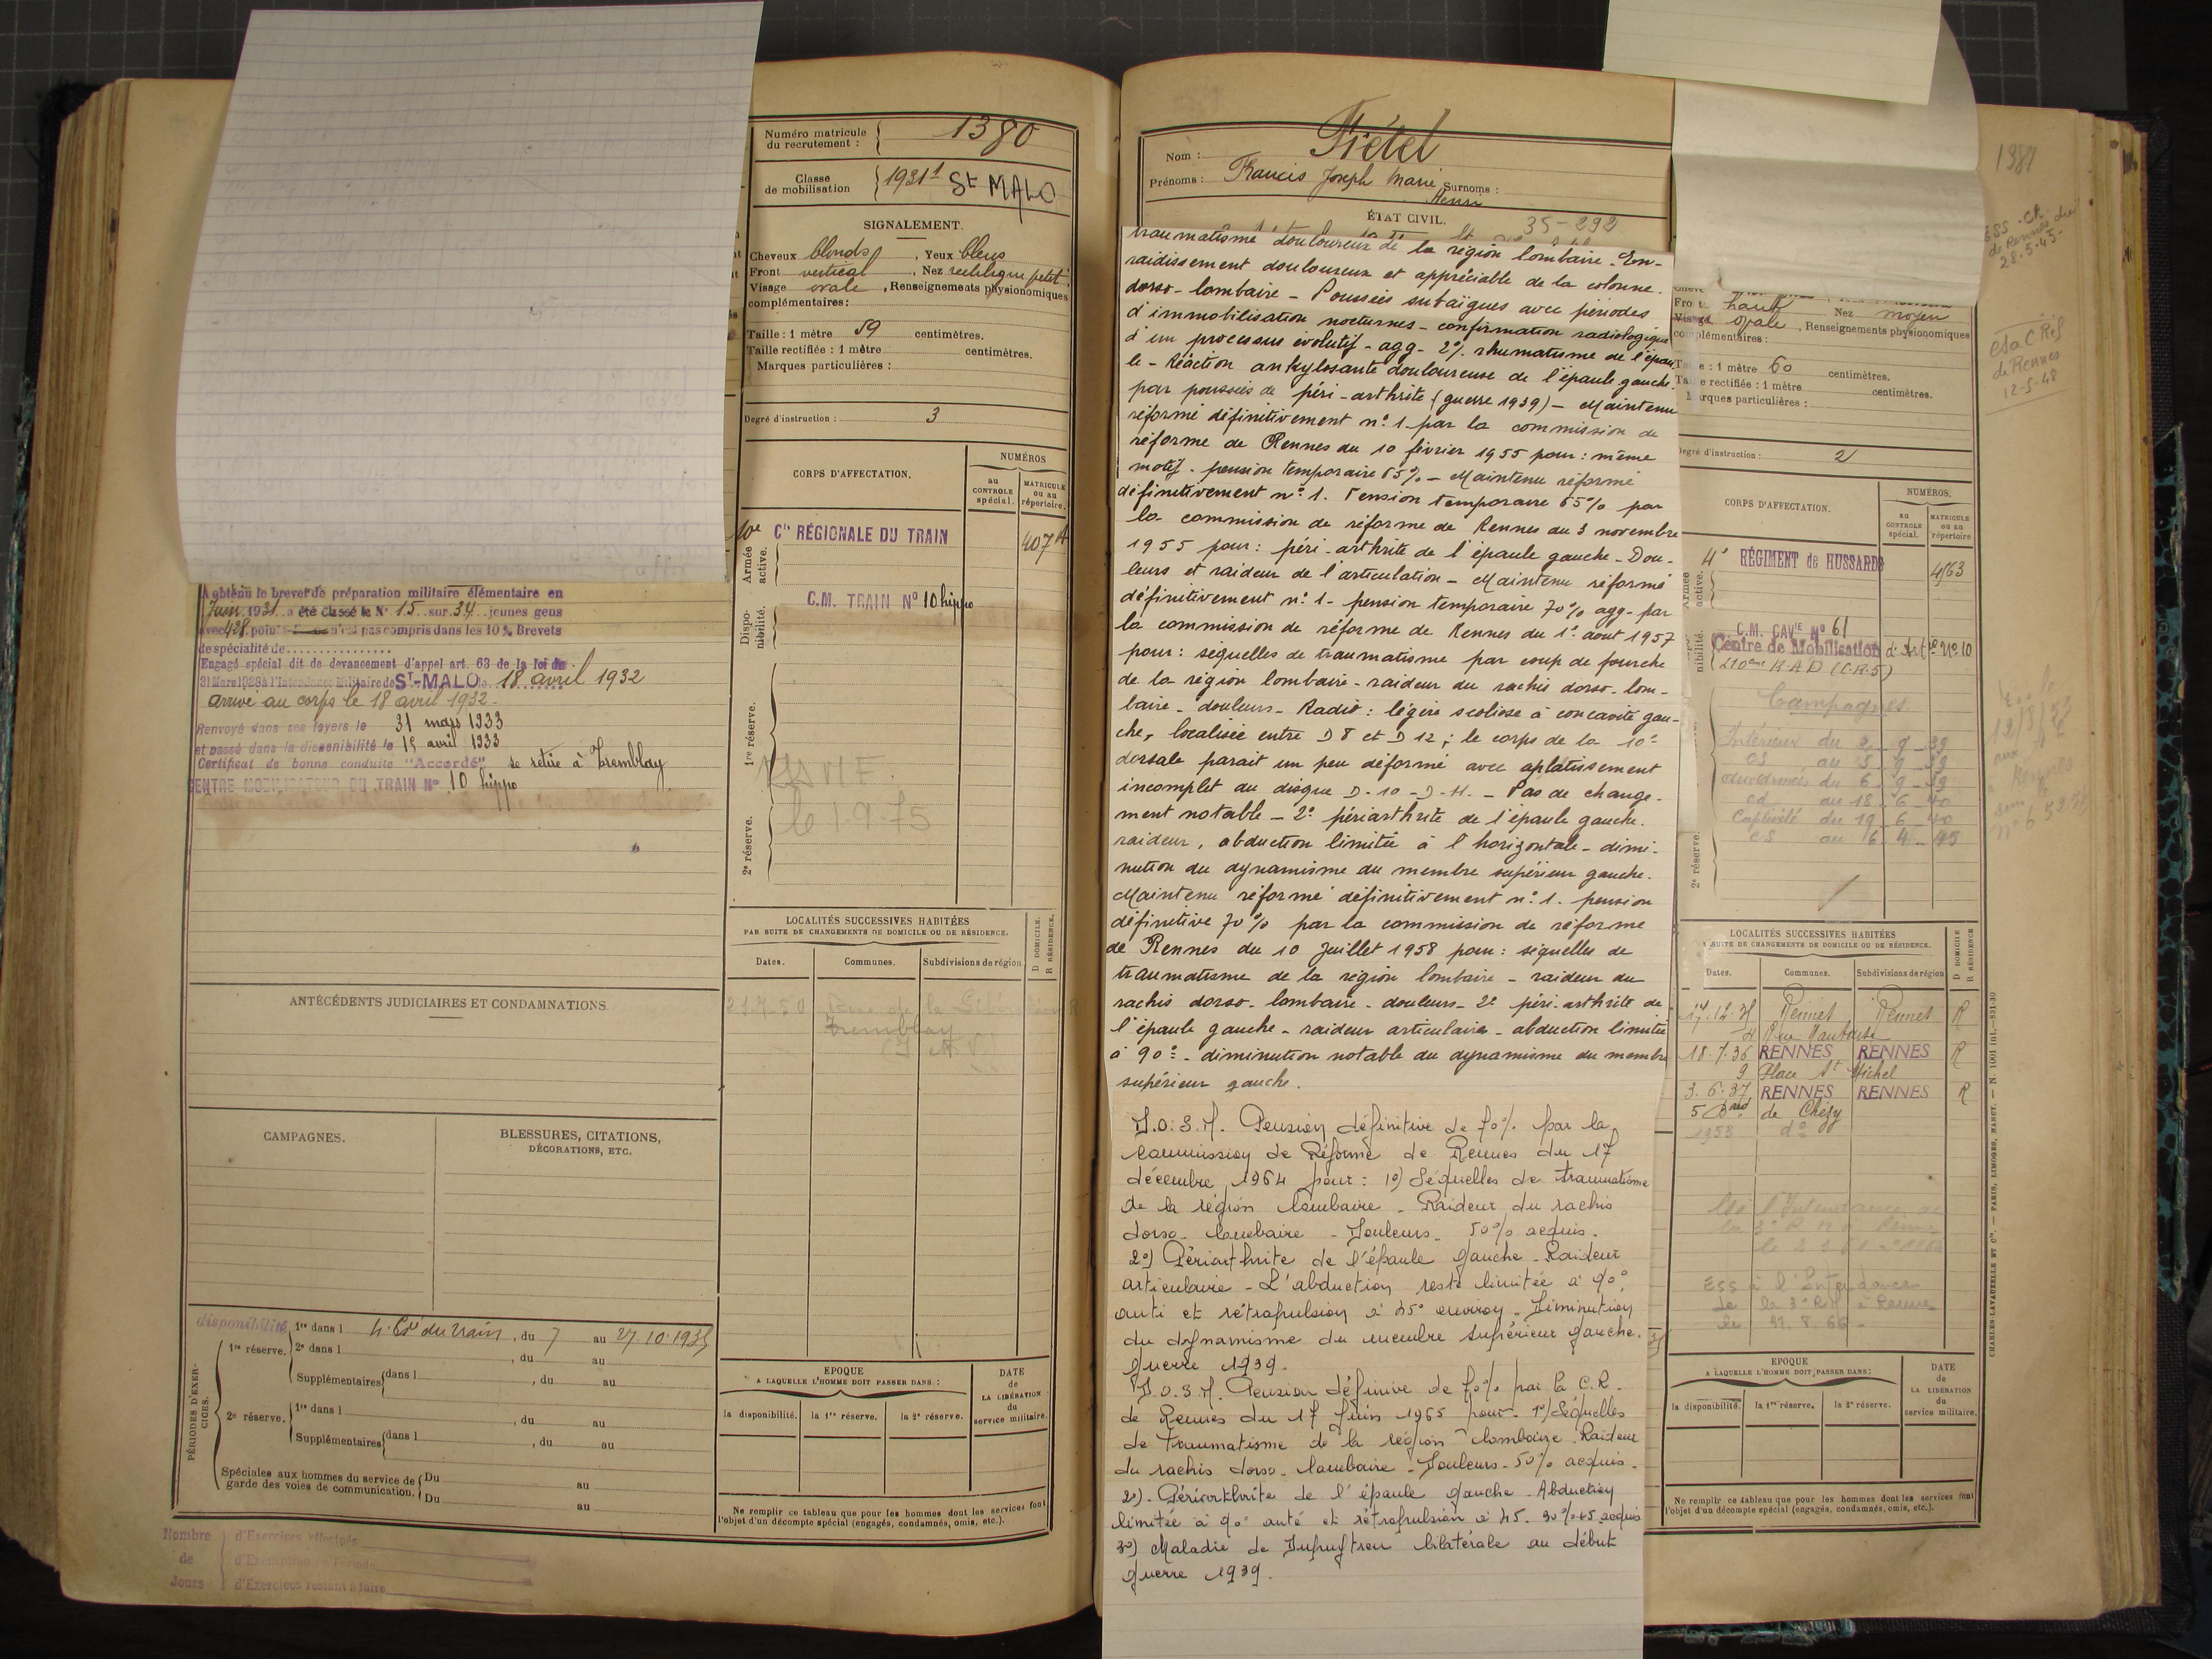 Numéro matricule
du recrutement :
1380
Classe
de mobilisation
1931 St MALO
SIGNALEMENT.
Cheveux blonds, Yeux bleus
Front vertical, Nez rectiligne petit
Visage ovale, Renseignements physionomiques
complémentaires :
Taille : 1 mètre 59 centimètres.
Taille rectifiée : 1 mètre centimètres.
Marques particulières :
Degré d'instruction : 3
CORPS D'AFFECTATION.
NUMÉROS
au
CONTROLE
spécial.
MATRICULE
ou au
répertoire.
Armée
active.
10e Cie RÉGIONALE DU TRAIN
407
Dispo-
nibilité.
C.M. TRAIN No 10 hippo
1re réserve.
le 1.9.75
2e réserve.
A obtenu le brevet de préparation militaire élémentaire en
Juin 1931 a été classé le No 15 sur 34 jeunes gens
avec 428 points n'est pas compris dans les 10 % Brevets
de spécialité de
Engagé spécial dit de devancement d'appel art. 63 de la loi du
31 Mars 1928 à l'Intendance Militaire de St-MALO le 18 avril 1932
arrivé au corps le 18 avril 1932.
Renvoyé dans ses foyers le 31 mars 1933
et passé dans la disponibilité le 15 avril 1933
Certificat de bonne conduite "Accordé" se retire à Tremblay
CENTRE MOBILISATEUR DU TRAIN No 10 hippo
ANTÉCÉDENTS JUDICIAIRES ET CONDAMNATIONS.
CAMPAGNES.
BLESSURES, CITATIONS,
DÉCORATIONS, ETC.
LOCALITÉS SUCCESSIVES HABITÉES
PAR SUITE DE CHANGEMENTS DE DOMICILE OU DE RÉSIDENCE.
D DOMICILE.
R RÉSIDENCE.
Dates.
Communes.
Subdivisions de région
Tremblay
PÉRIODES D'EXER-
CICES.
disponibilité
1re réserve.
1re dans l 4. Cie du train, du 7 au 27.10.1935
2e dans l , du au
Supplémentaires dans l , du au
2e réserve.
1re dans l , du au
Supplémentaires dans l , du au
Spéciales aux hommes du service de
garde des voies de communication.
Du au
Du au
EPOQUE
A LAQUELLE L'HOMME DOIT PASSER DANS :
DATE
de
LA LIBÉRATION
du
service militaire.
la disponibilité.
la 1re réserve.
la 2e réserve.
Ne remplir ce tableau que pour les hommes dont les services font
l'objet d'un décompte spécial (engagés, condamnés, omis, etc.).
Nombre
de
Jours
d'Exercices effectués
d'Exemption de Période
d'Exercices restant à faire
Nom :
Prénoms : Francis Joseph Marie Surnoms :
Henri
ÉTAT CIVIL.
35-292
traumatisme douloureux de la région lombaire. En-
raidissement douloureux et appréciable de la colonne.
dorso-lombaire - Poussées subaïgues avec périodes
d'immobilisation nocturnes - confirmation radiologique
d'un processus évolutif - agg - 2% rhumatisme de l'épau
le - Réaction ankylosante douloureuse de l'épaule gauche.
par poussées de péri-arthrite (guerre 1939) - Maintenu
réformé définitivement n° 1. par la commission de
réforme de Rennes du 10 février 1955 pour : même
motif. pension temporaire 65% - Maintenu réformé
définitivement n° 1. Pension temporaire 65% par
la commission de réforme de Rennes du 3 novembre
1955 pour : péri-arthrite de l'épaule gauche - Dou-
leurs et raideur de l'articulation - Maintenu réformé
définitivement n° 1 - pension temporaire 70% agg - par
la commission de réforme de Rennes du 1° aout 1957
pour : sequelles de traumatisme par coup de fourche
de la région lombaire - raideur du rachis dorso-lom-
baire - douleurs - Radio : légère scoliose à concavité gau-
che, localisée entre D 8 et D 12 ; le corps de la 10°
dorsale parait un peu déformé avec aplatissement
incomplet du disque D-10 - D-11. - Pas de change-
ment notable - 2° périarthrite de l'épaule gauche.
raideur, abduction limitée à l'horizontale - dimi-
nution du dynamisme du membre supérieur gauche.
Maintenu réformé définitivement n° 1. pension
définitive 70% par la commission de réforme
de Rennes du 10 Juillet 1958 pour : séquelles de
traumatisme de la région lombaire - raideur du
rachis dorso-lombaire - douleurs - 2° péri-arthrite de
l'épaule gauche - raideur articulaire - abduction limitée
à 90° - diminution notable du dynamisme du membre
supérieur gauche.
Pension définitive de 70% par la
Commission de Réforme de Rennes du 17
décembre 1964 pour : 1°) Séquelles de traumatisme
de la région lombaire - Raideur du rachis
dorso-lombaire - Douleurs - 50% acquis.
2°) Périarthrite de l'épaule gauche - Raideur
articulaire - L'abduction reste limitée à 90°
anti et rétropulsion à 45° environ - Diminution
du dynamisme du membre supérieur gauche.
guerre 1939.
Pension définive de 70% par la C.R.
de Rennes du 17 Juin 1965 pour - 1°) Séquelles
de traumatisme de la région lombaire - Raideur
du rachis dorso-lombaire - Douleurs - 50% acquis.
2°) - Périarthrite de l'épaule gauche - Abduction
limitée à 90° anté et rétropulsion à 45. 30%+5 acquis
3°) Maladie de Dupuytren bilatérale au début
guerre 1939.
Front haut Nez moyen
Visage ovale, Renseignements physionomiques
complémentaires :
Taille : 1 mètre 60 centimètres.
Taille rectifiée : 1 mètre centimètres.
Marques particulières :
Degré d'instruction : 2
CORPS D'AFFECTATION.
NUMÉROS.
au
CONTROLE
spécial.
MATRICULE
ou au
répertoire
4e RÉGIMENT de HUSSARDS
C.M. CAVie No 61
Centre de Mobilisation d'Artie No 10
Campagnes
Intérieur du 2-9-39
CS au 5-9-39
aux Armées du 6-9-39
cd au 18-6-40
Captivité du 19-6-40
CS au 6-4-45
2e réserve.
LOCALITÉS SUCCESSIVES HABITÉES
SUITE DE CHANGEMENTS DE DOMICILE OU DE RÉSIDENCE.
D DOMICILE
R RÉSIDENCE
Dates.
Communes.
Subdivisions de région
Rennes Rennes R
18.7.36 RENNES RENNES R
9 Place St Michel
3.6.37 RENNES RENNES R
5 Bard de Chézy
1953 do
Ess à l'Intendance
de la 3e à Rennes
EPOQUE
A LAQUELLE L'HOMME DOIT PASSER DANS :
DATE
de
LA LIBÉRATION
du
service militaire.
la disponibilité.
la 1re réserve.
la 2e réserve.
Ne remplir ce tableau que pour les hommes dont les services font
l'objet d'un décompte spécial (engagés, condamnés, omis, etc.).
CHARLES-LAVAUZELLE ET Cie. — PARIS, LIMOGES, NANCY.
1381
de Rennes du
28-5-45-
de Rennes
12-5-48